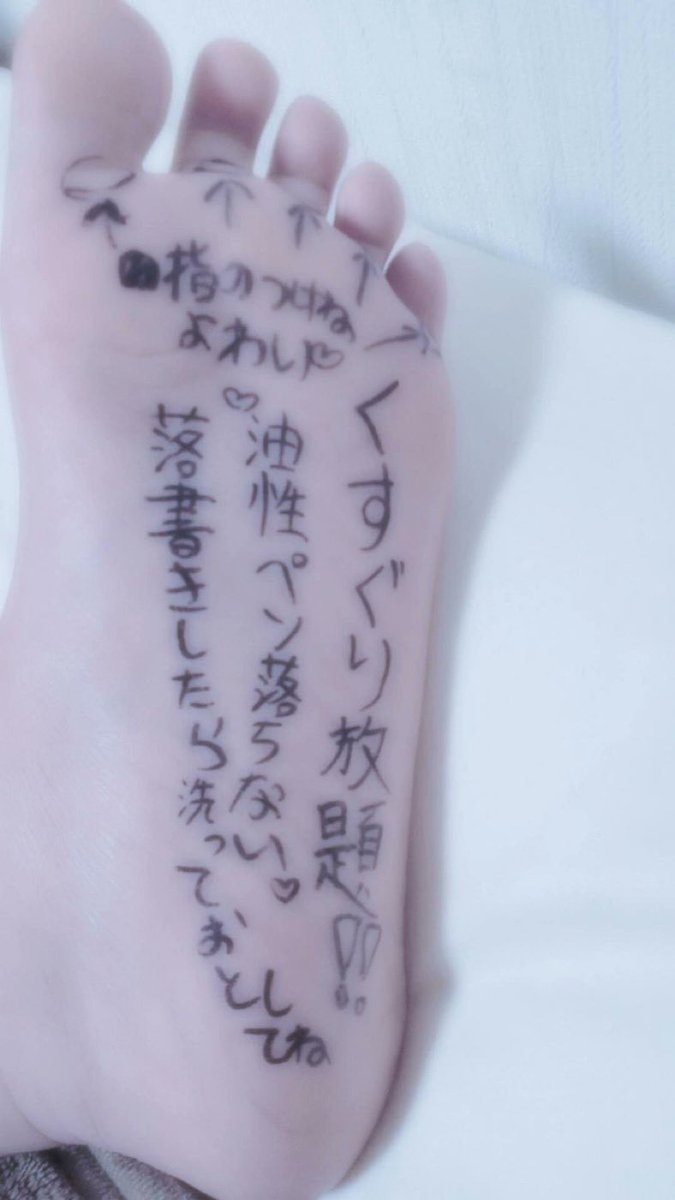 指のつけね
よわい♡
くすぐり放題!!
♡油性ペン落ちない♡
落書きしたら洗っておとし
てね